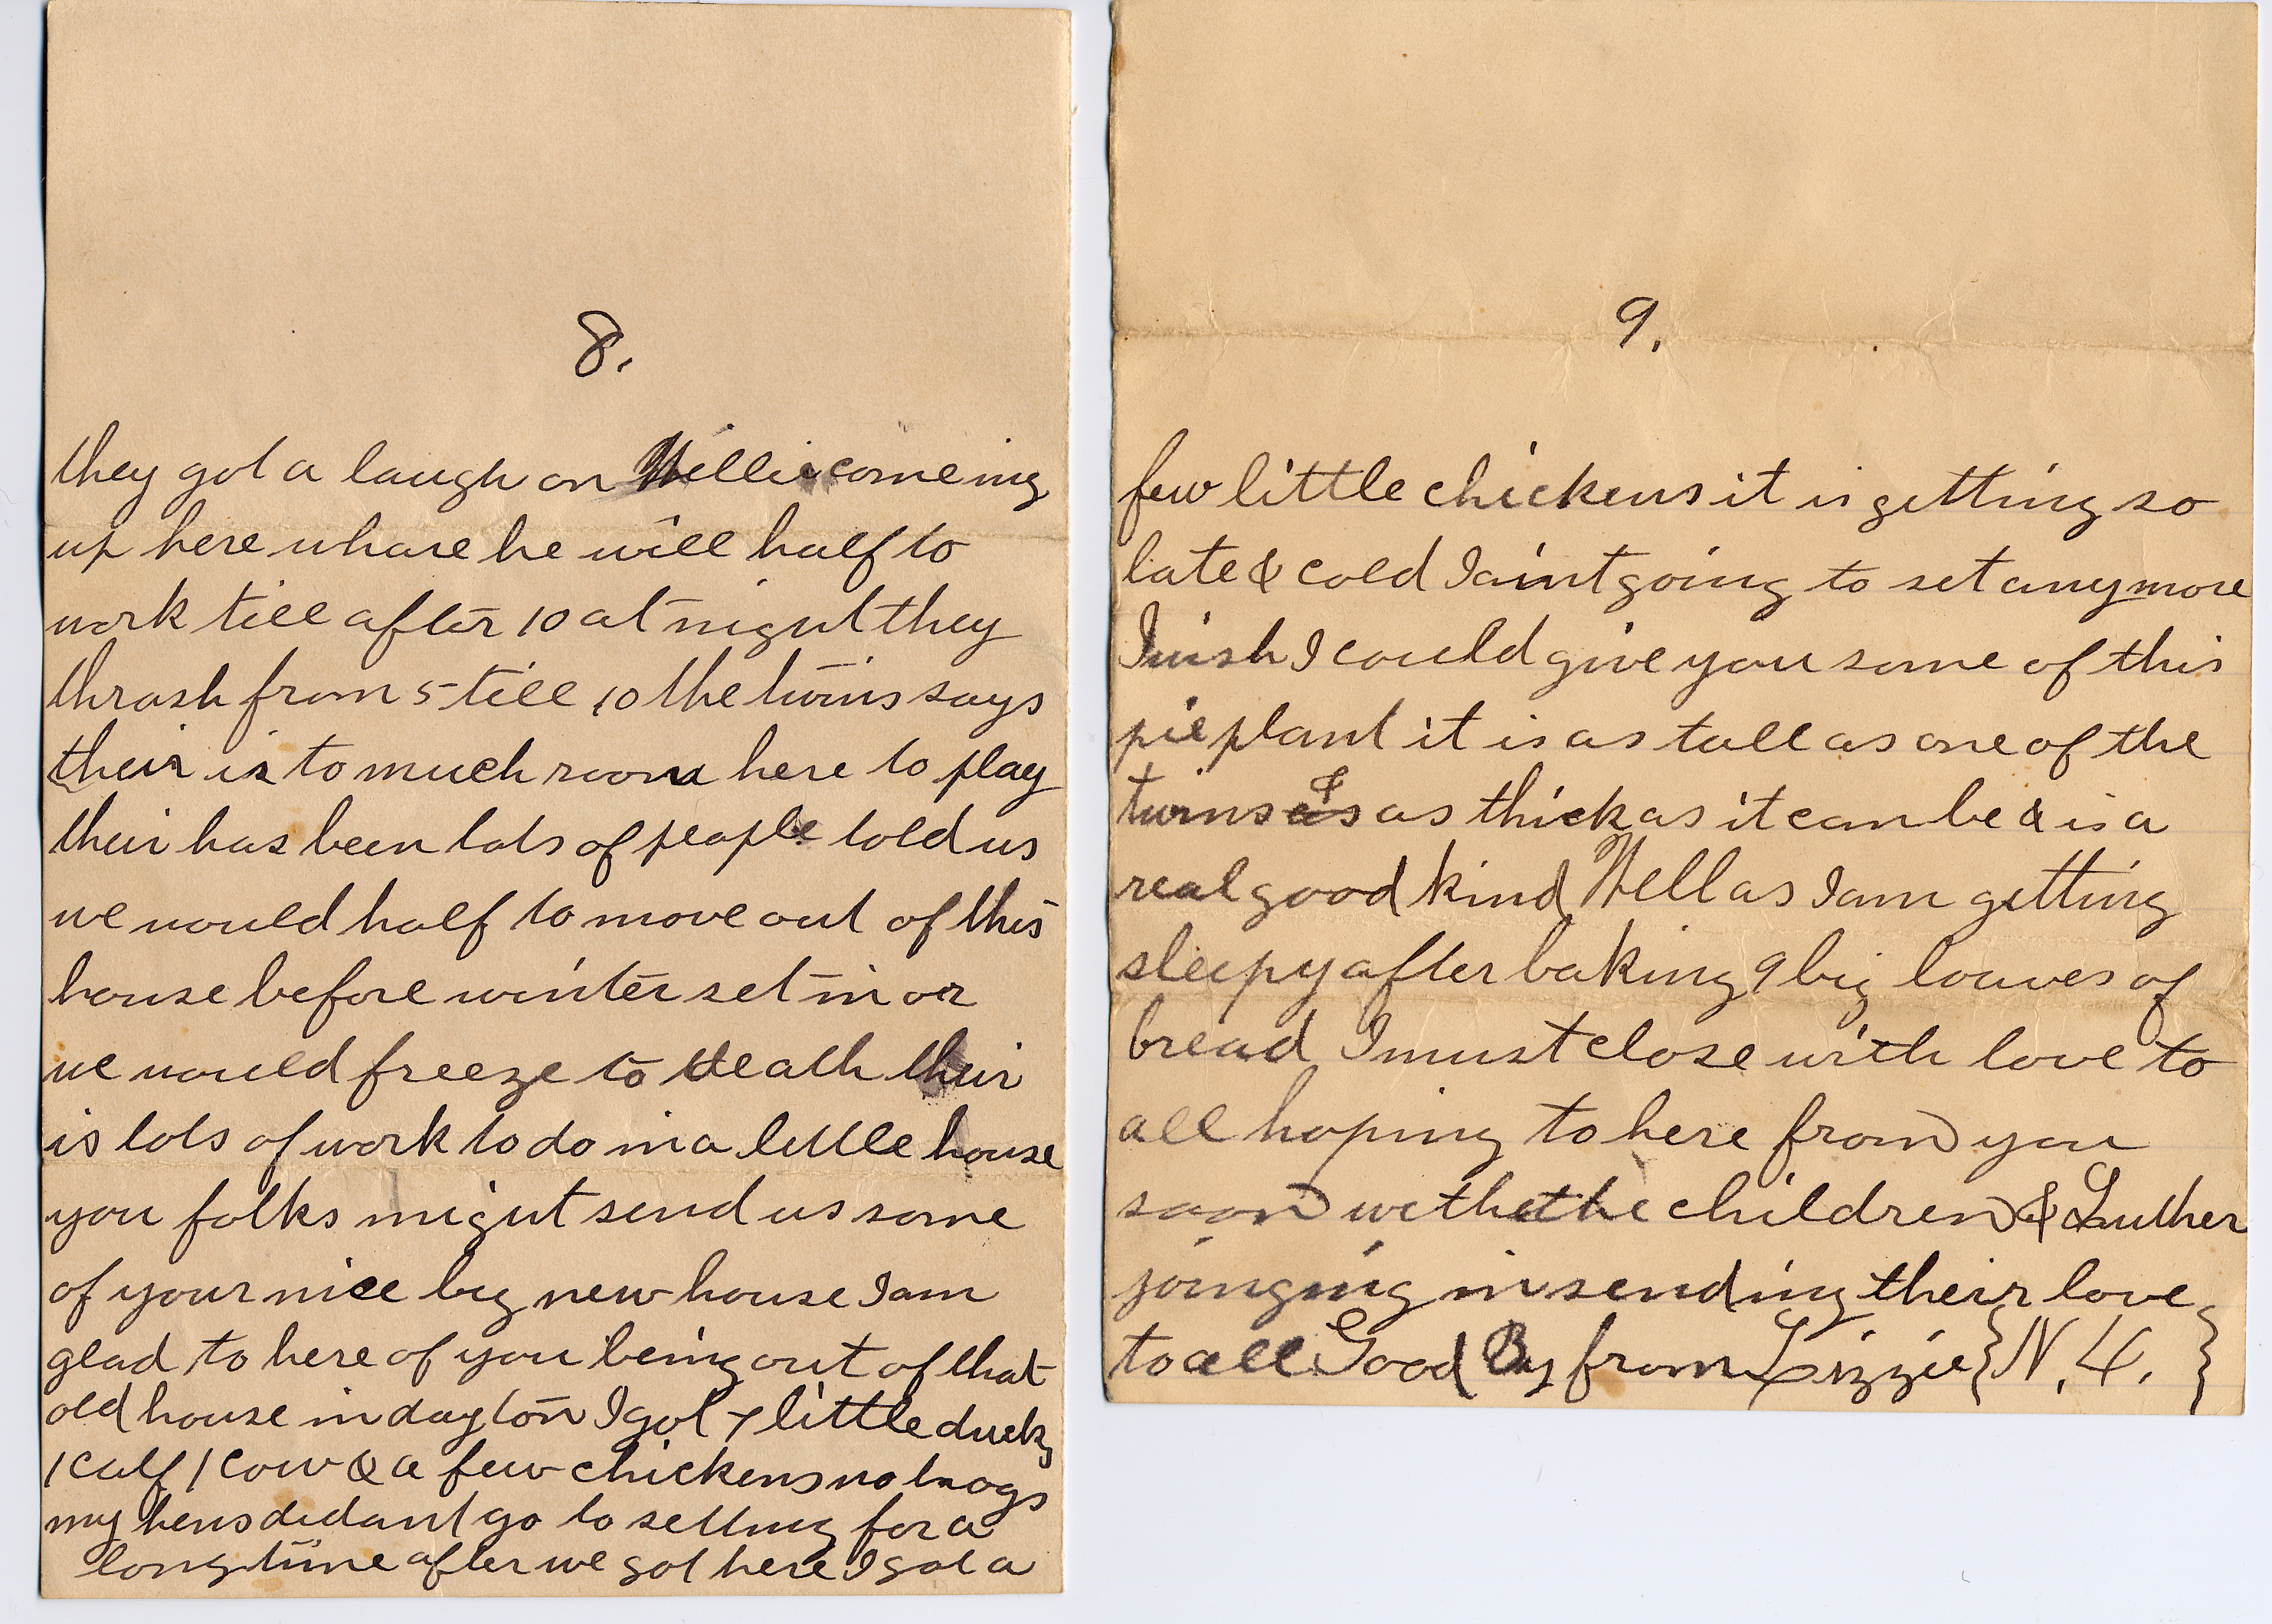 8.
they got a laugh on Willie comeing
up here whare he will half to
work till after 10 at night they
thrash from 5 till 10 the twins says
their is to much room here to play
their has been lots of people told us
we would half to move out of this
house before winter set in or
we would freeze to death their
is lots of work to do in a little house
you folks might send us some
of your nice big new house I am
glad to here of you being out of that
old house in dayton I got 7 little ducks
1 calf 1 cow & a few chickens no hogs
my hens didant go to setting for a
long time after we got here I got a
9.
few little chickens it is getting so
late & cold I aint going to set any more
I wish I could give you some of this
pie plant it is as tall as one of the
twins & as thick as it can be & is a
real good kind Well as I am getting
sleepy after baking 9 big loaves of
bread I must close with love to
all hoping to here from you
soon with the children & Luther
joinging in sending their love
to all Good By from Lizzie {N. L. }